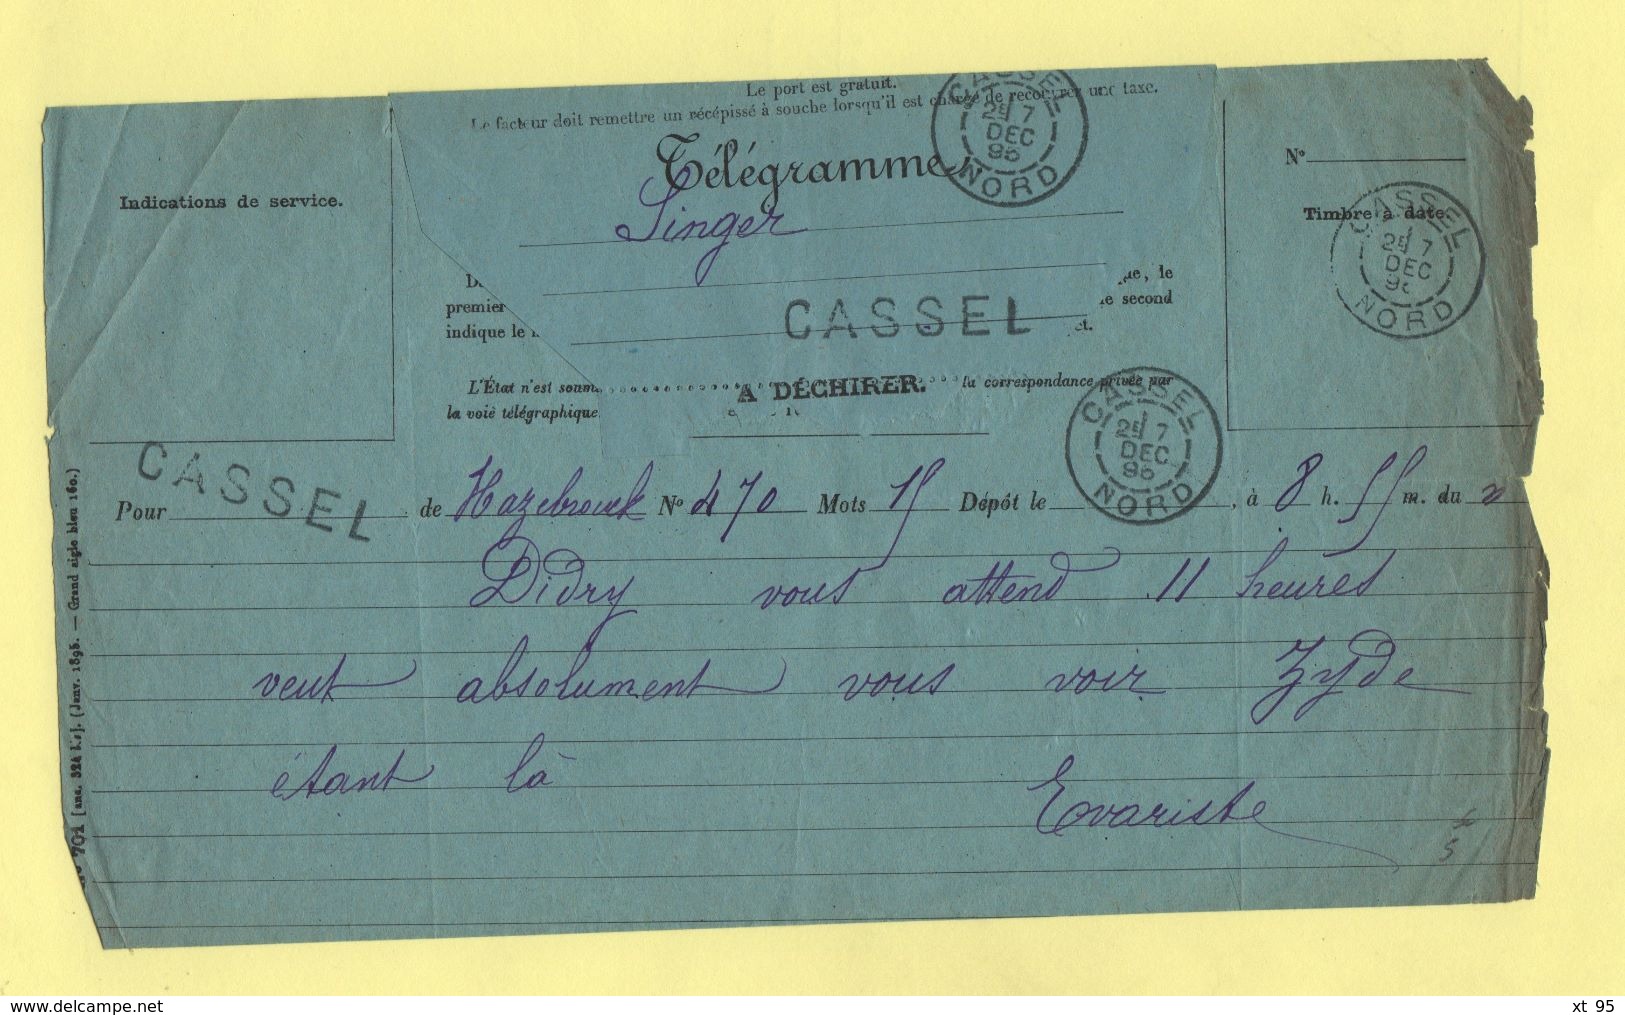 Le port est gratuit.
Le facteur doit remettre un récépissé à souche lorsqu'il est chargé de recouvrer une taxe.
Télégramme
Singer
CASSEL
A DÉCHIRER.
CASSEL
7
DEC
95
NORD
Indications de service.
premier
indique le
le
le second
L'État n'est soum
la correspondance privée par
la voie télégraphique.
N°
Timbre à date.
CASSEL
7
DEC
NORD
CASSEL
7
DEC
95
NORD
CASSEL
Pour de Hazebrouck N° 470 Mots 15 Dépôt le , à 8 h. 55 m. du
Didry vous attend 11 heures
veut absolument vous voir Zyde
étant là
Evariste
701 [anc. 324 bis]. (Janv. 1895. — Grand aigle bleu 160.)
delcampe.net
xt 95